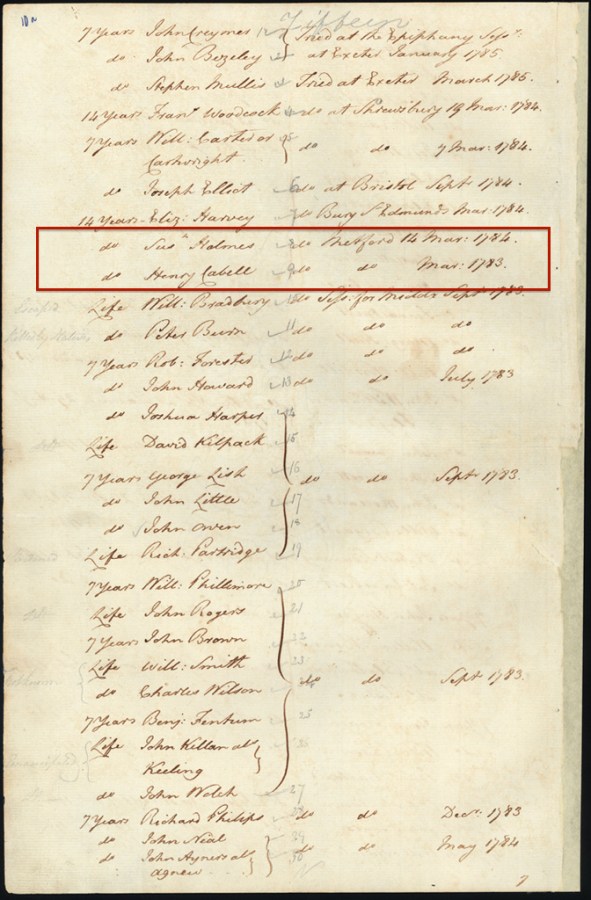 10a
7 Years John Creymes 1 Tried at the Epiphany Sess:
do John Bezeley 2 at Exeter January 1785.
do Stephen Mullis Tried at Exeter March 1785.
14 Years Fran.s Woodcock do at Shrewsbury 19 Mar: 1784.
7 Years Will: Carter or
Cartwright. do do 7 Mar: 1784.
do Joseph Elliot 6 do at Bristol Sept.r 1784.
14 Years Eliz: Harvey 7 do Bury St Edmunds Mar: 1784.
do Sus.a Holmes 8 do Thetford 14 Mar: 1784.
do Henry Cabell 9 do do Mar: 1783.
Life Will: Bradbury 10 do Sess: for Middx Sept.r 1783.
do Peter Burn 11 do do do
7 Years Rob: Forester 12 do do do.
do John Howard 13 do do July 1783
do Joshua Harper 14
Life David Kilpack 15
7 Years George Lish 16 do do Sept.r 1783.
do John Little 17
do John Owen 18
Life Rich: Partridge 19
7 Years Will: Phillimore 20
Life John Rogers 21
7 Years John Brown 22
Life Will: Smith 23
do Charles Wilson do do Sept.r 1783.
7 Years Benj: Fentum 25
Life John Killan als
Keeling
do John Welch 27
7 Years Richard Philips 28 do do Dec.r 1783
do John Neal 29
do John Ayners als 30 do do May 1784
Agnew